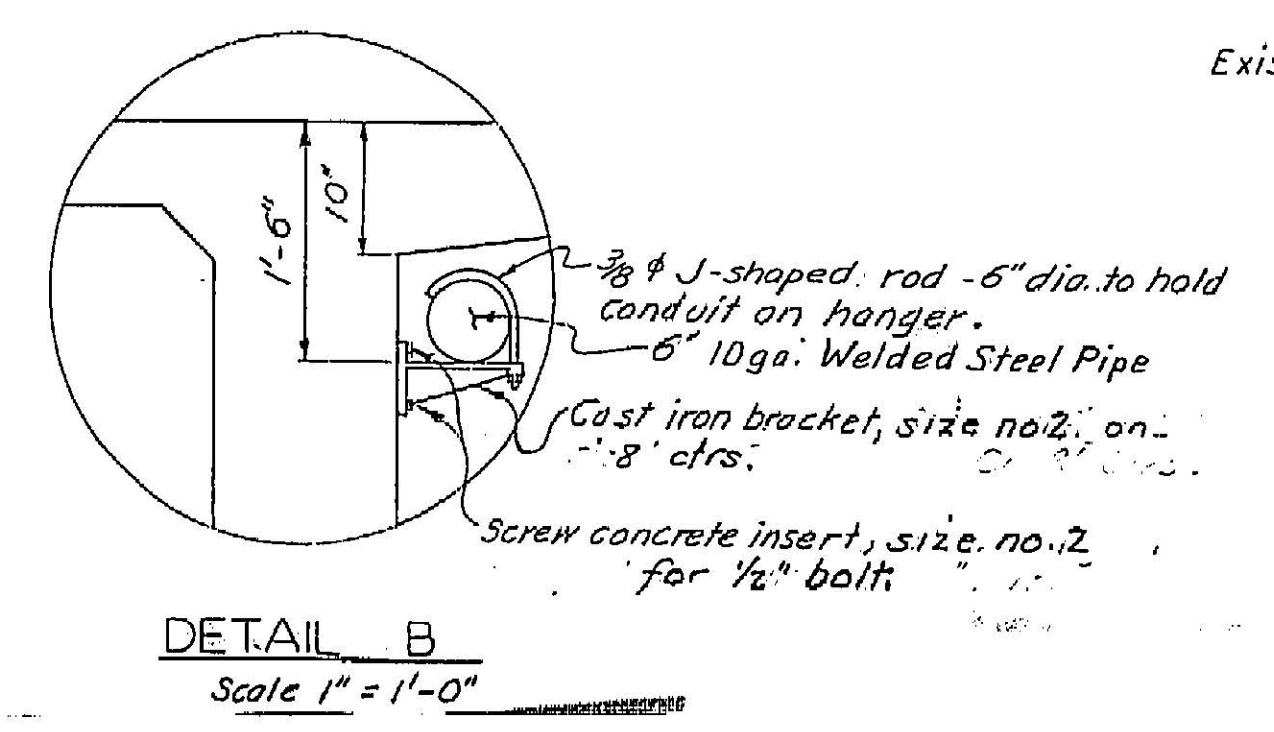 Exis
1'-6"
10"
3/8 ϕ J-shaped rod - 6" dia. to hold
conduit on hanger.
6" 10ga. Welded Steel Pipe
Cast iron bracket, size no.2 on
8' ctrs.
Screw concrete insert, size no. 2
for 1/2" bolt.
DETAIL B
Scale 1" = 1'-0"